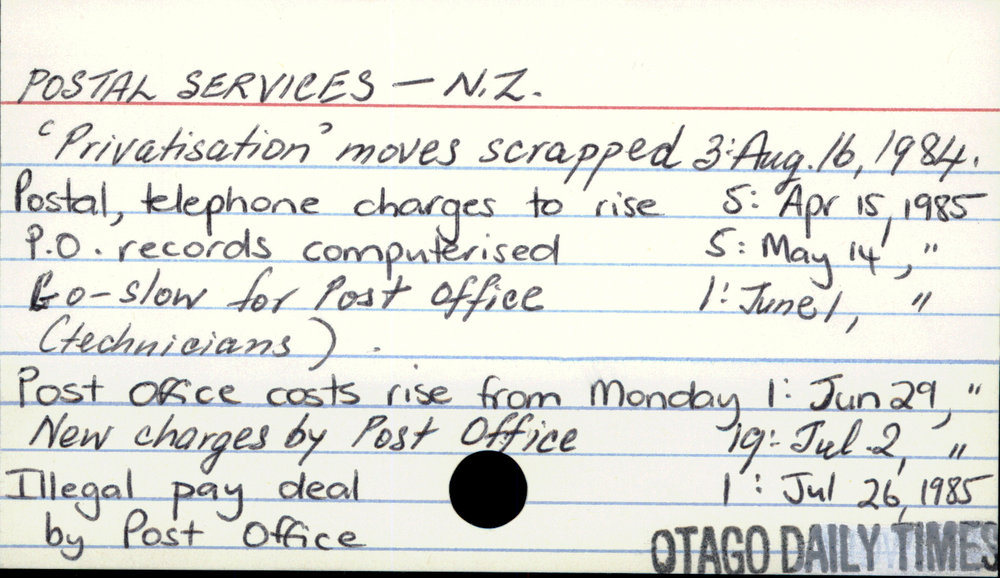 POSTAL SERVICES — N.Z.
'Privatisation' moves scrapped 3: Aug. 16, 1984.
Postal, telephone charges to rise 5: Apr 15, 1985
P.O. records computerised 5: May 14, "
Go-slow for Post Office 1: June 1, "
(technicians).
Post Office costs rise from Monday 1: Jun 29, "
New charges by Post Office 19: Jul. 2, "
Illegal pay deal 1: Jul 26, 1985
by Post Office
OTAGO DAILY TIMES